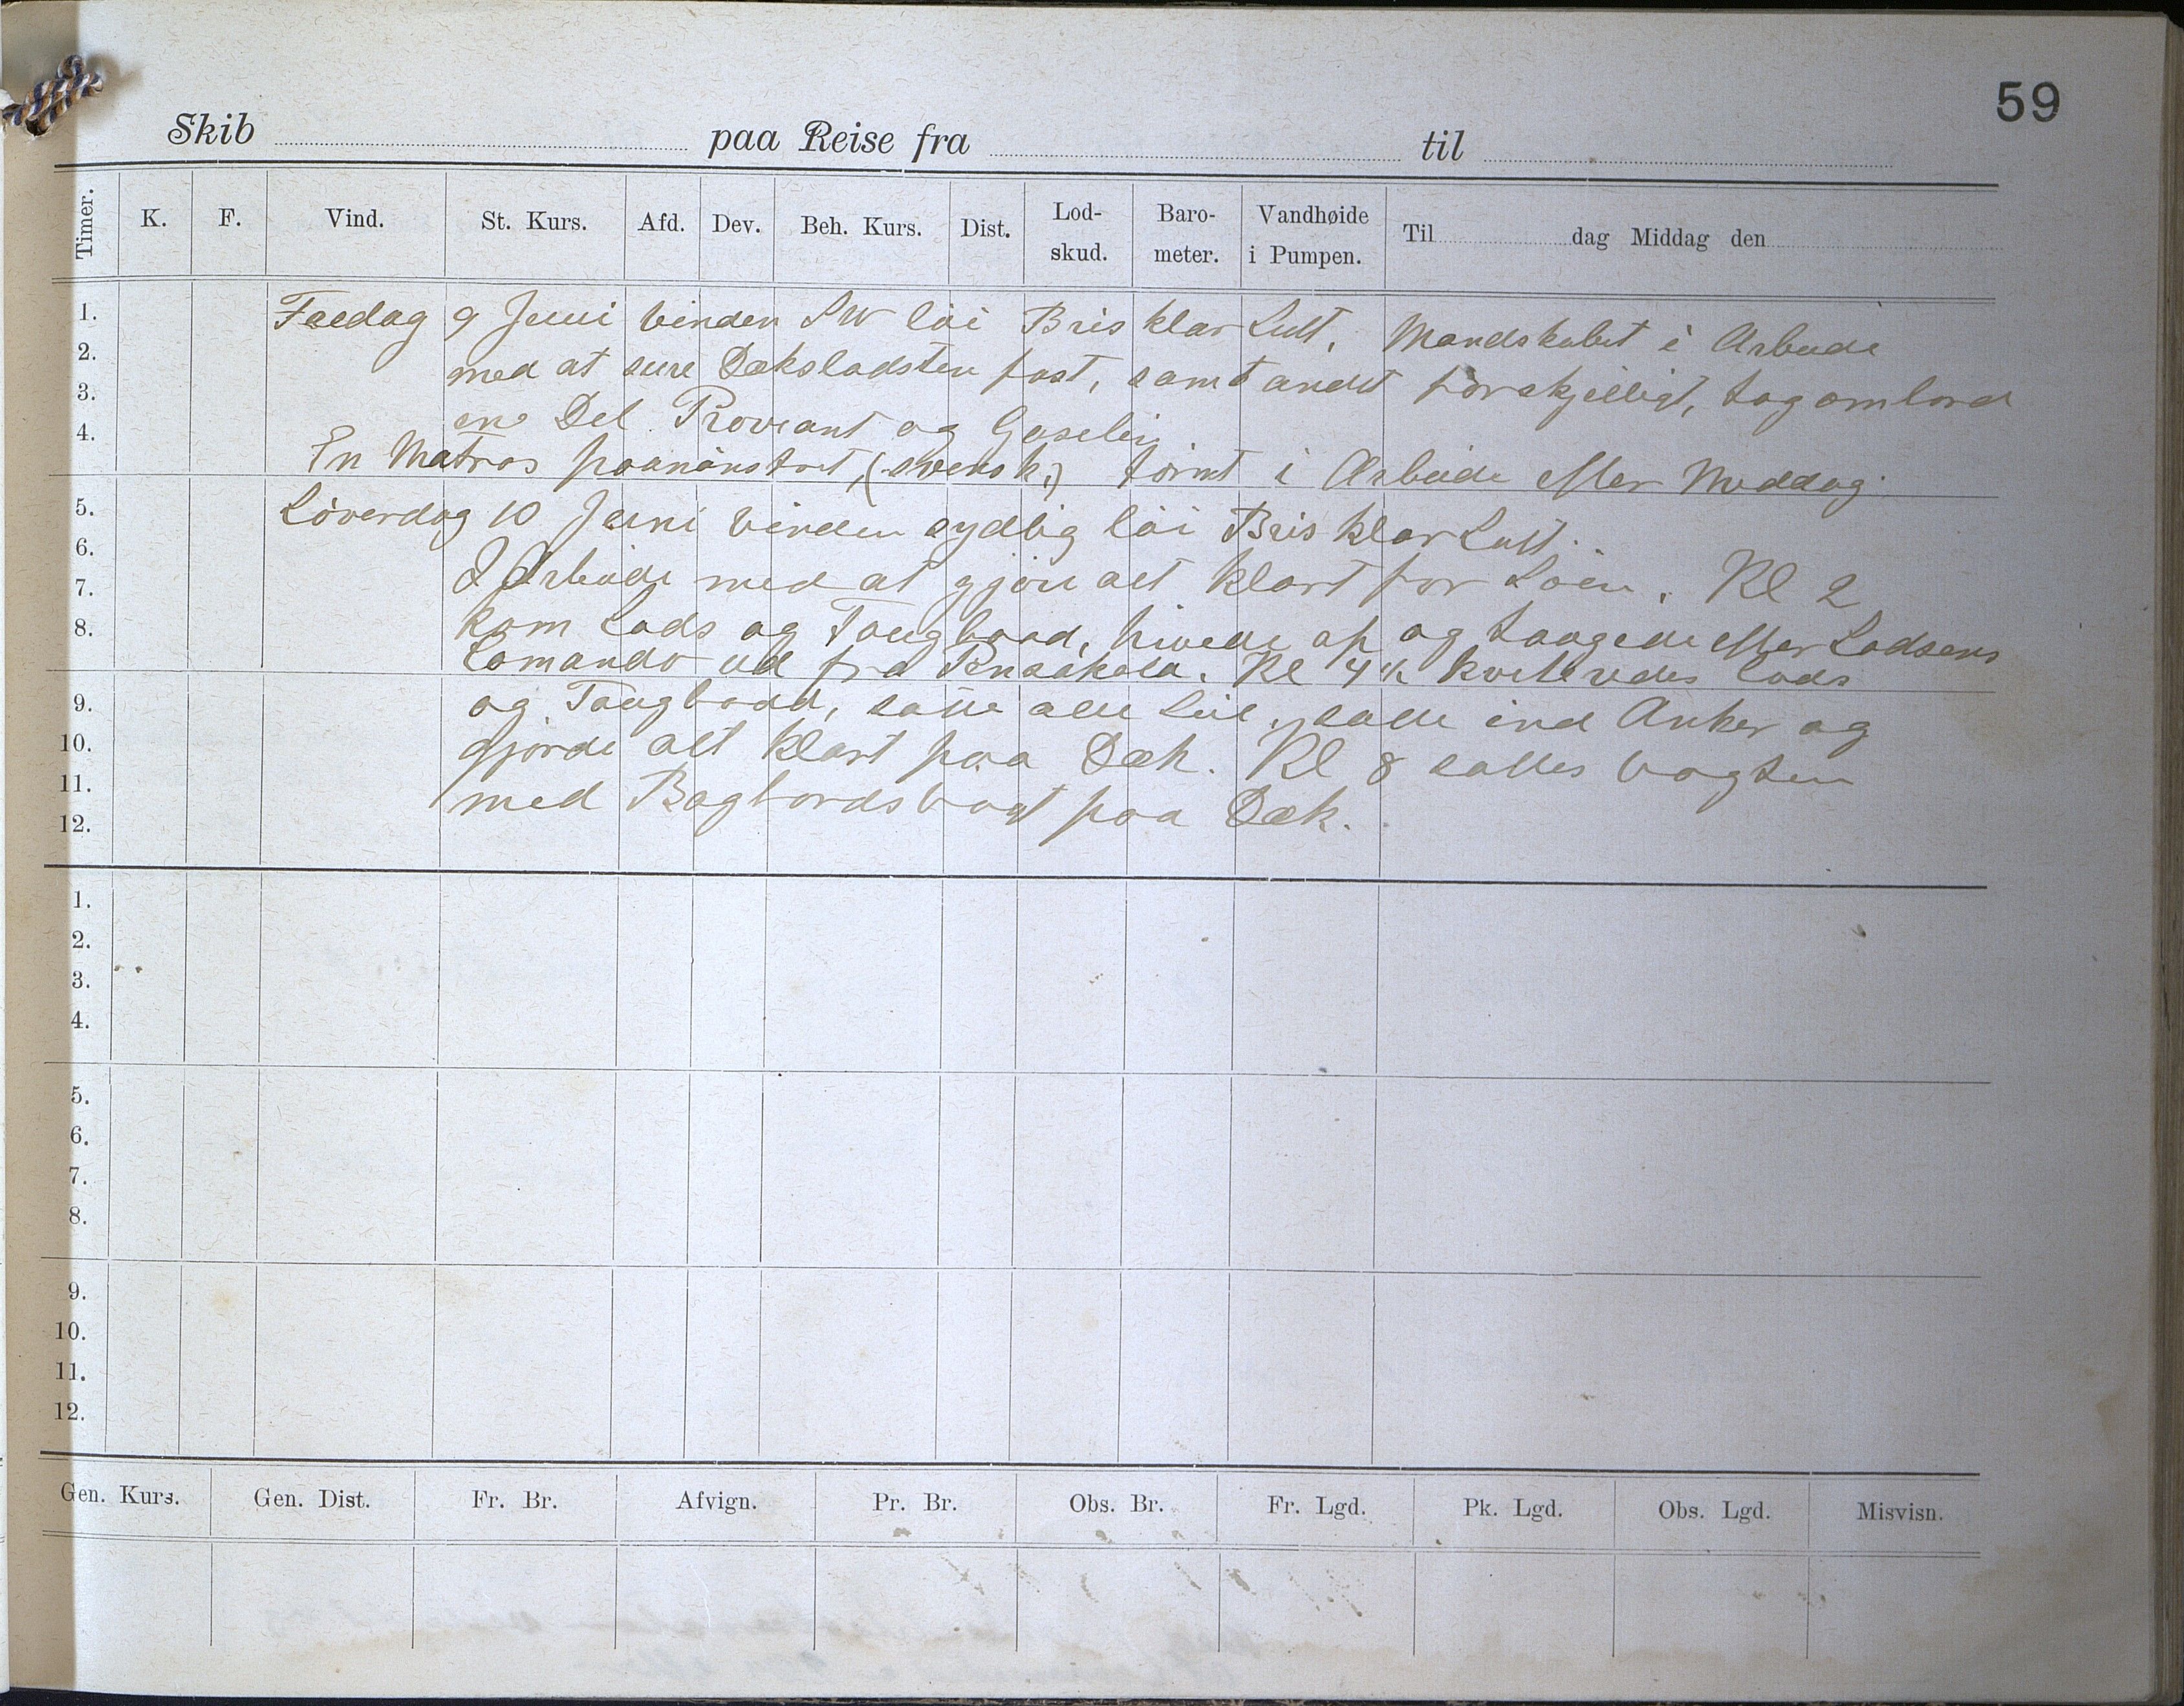 59
Skib paa Reise fra til
Timer. K. F. Vind. St. Kurs. Afd. Dev. Beh. Kurs. Dist. Lod-skud. Baro-meter. Vandhøide i Pumpen. Til dag Middag den
1.
2.
3.
4.
5.
6.
7.
8.
9.
10.
11.
12.
Fredag 9 Juni Vinden SW löi Bris klar Luft. Mandskabet i Arbeide
med at sure Dækslodsten fast, samt andet forskjelligt, tog ombord
en Del Proviant og Gasolin.
En Matros paamönstret, (svensk.) törnt i Arbeide efter Meddag.
Löverdag 10 Juni Vinden sydlig löi Bris klar Luft.
I Arbeide med at gjöre alt klart for Söen. Kl 2
kom Lods og Taugbaad, hivede op og taugede efter Lodsens
Comando ud fra Pensakola. Kl 4½ kvitteredes Lods
og Taugbaad, satte alle Seil, satte ind Anker og
gjorde alt klart paa Dæk. Kl 8 sattes Vagten
med Bagbords Vagt paa Dæk.
1.
2.
3.
4.
5.
6.
7.
8.
9.
10.
11.
12.
Gen. Kurs. Gen. Dist. Fr. Br. Afvign. Pr. Br. Obs. Br. Fr. Lgd. Pk. Lgd. Obs. Lgd. Misvisn.